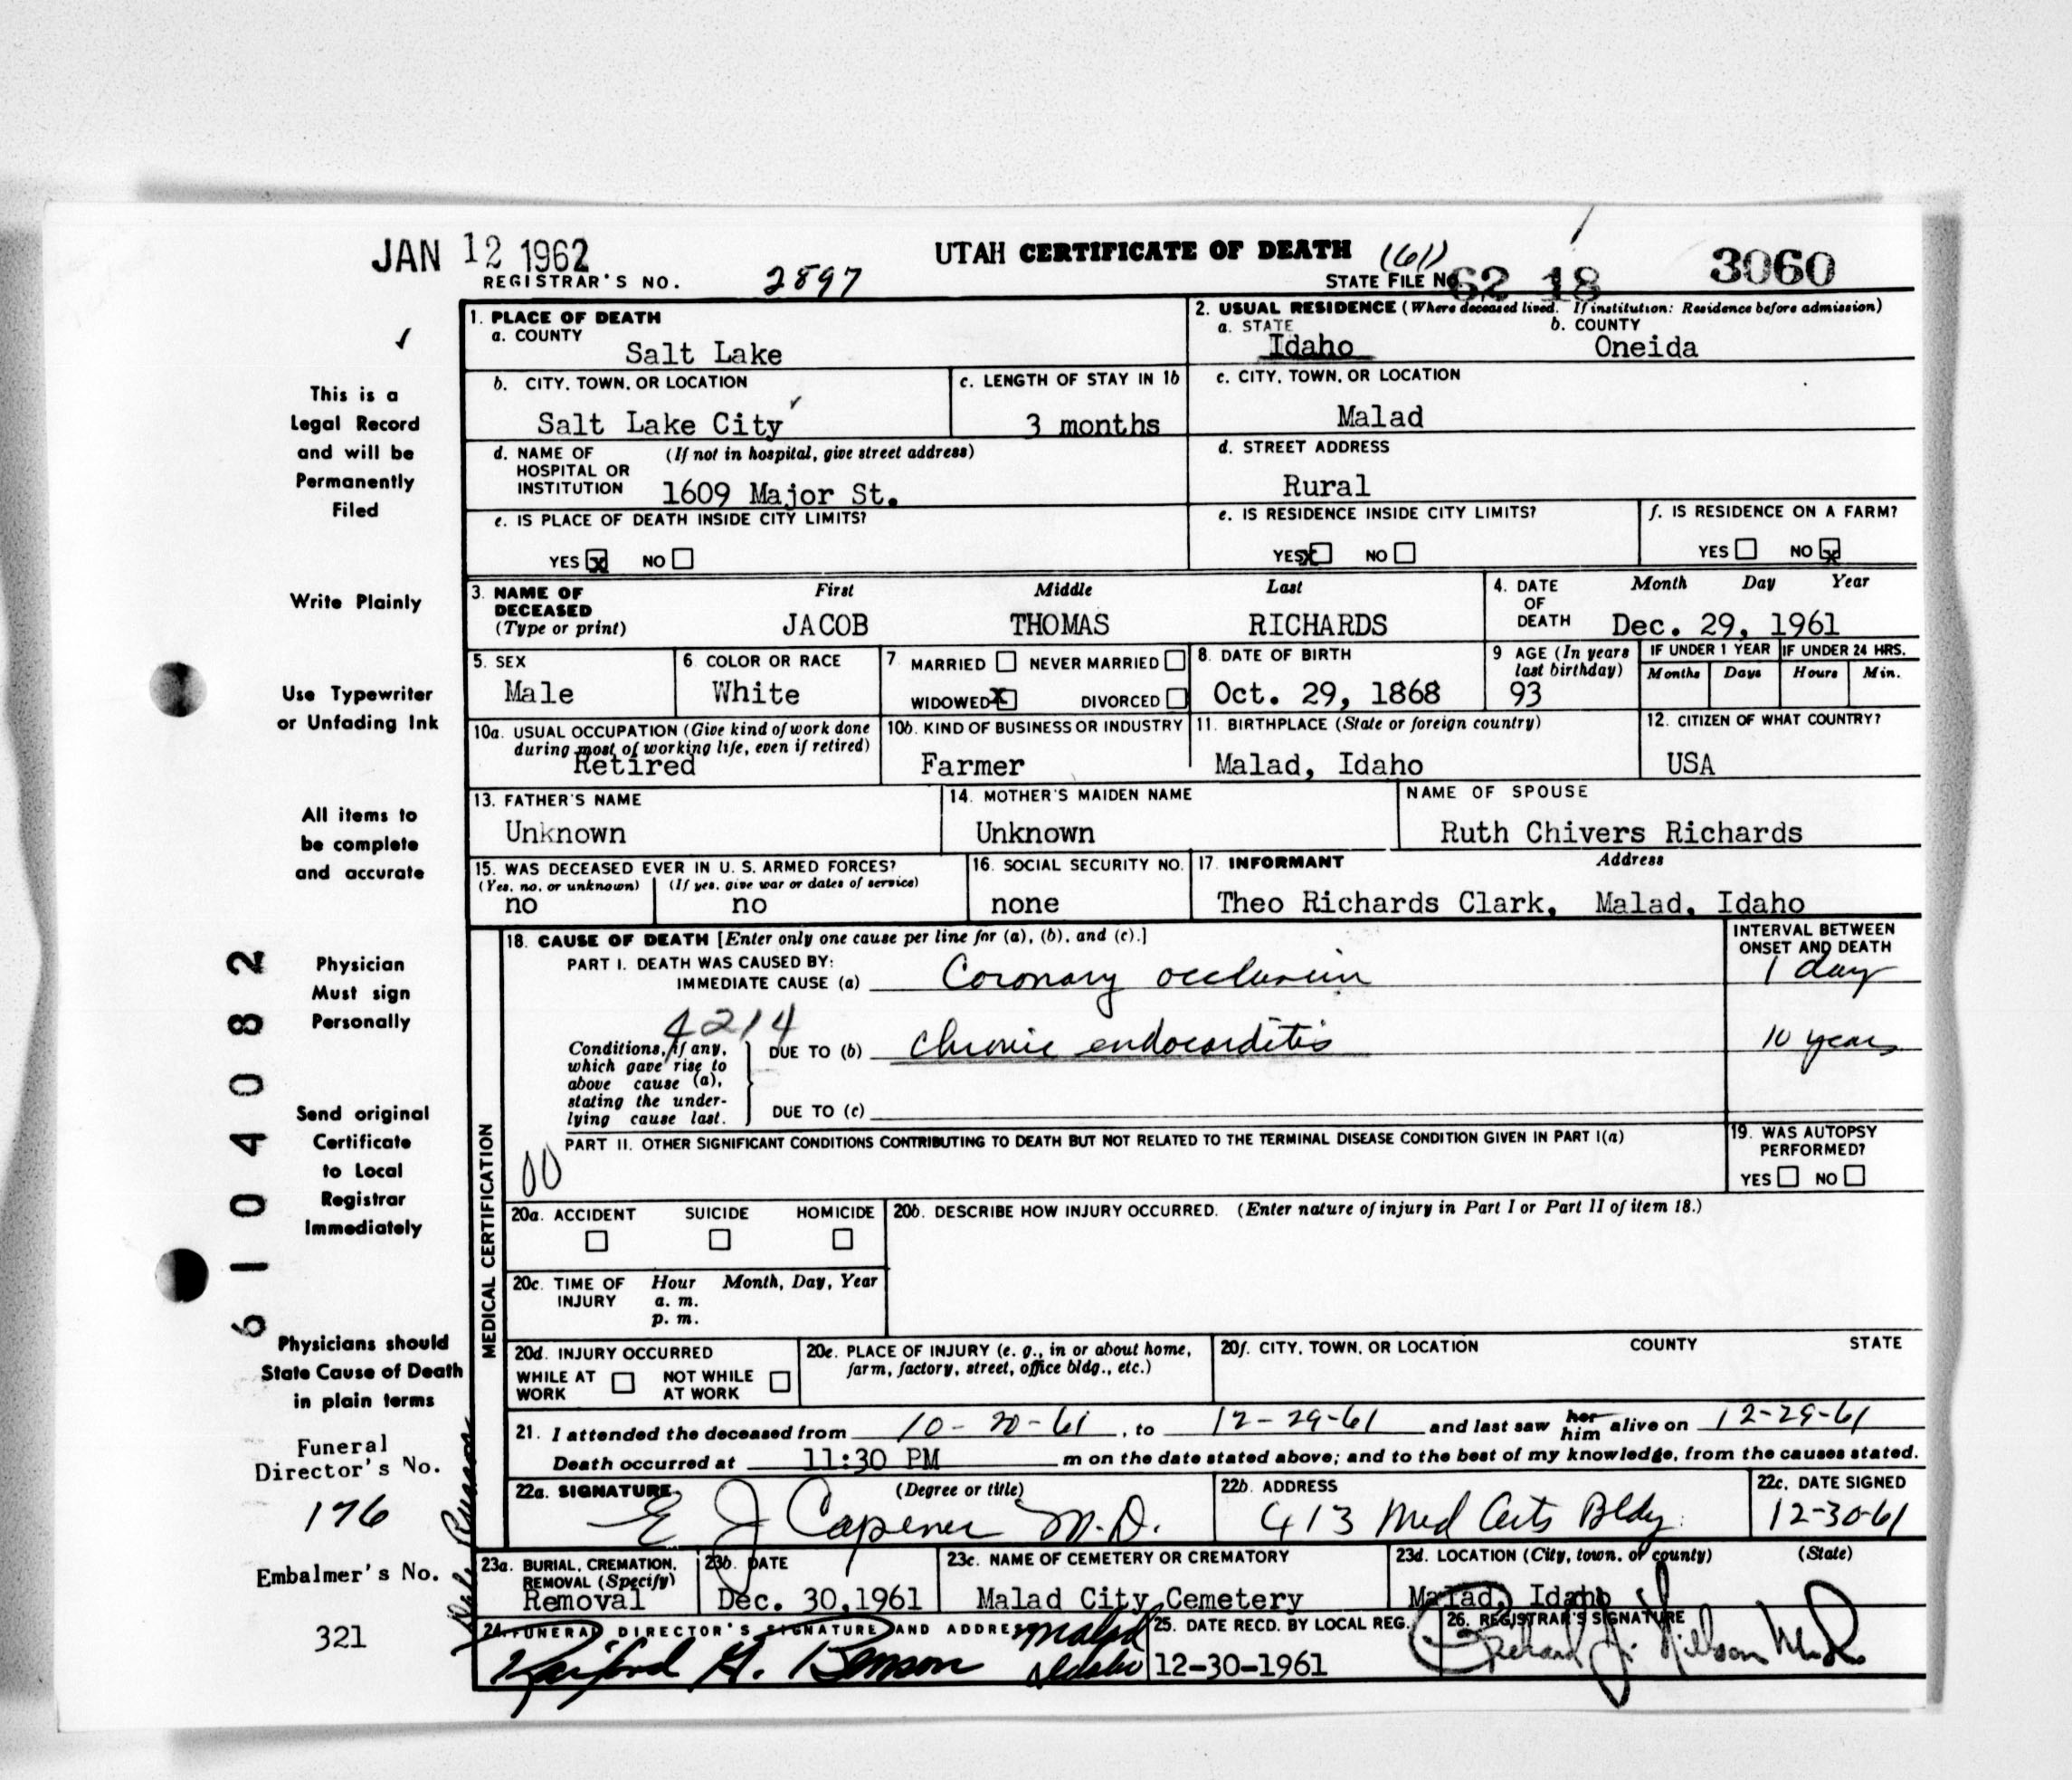 JAN 12 1962
UTAH CERTIFICATE OF DEATH (61)
REGISTRAR'S NO. 2897
STATE FILE NO. 62 18 3060
1. PLACE OF DEATH
a. COUNTY
Salt Lake
2. USUAL RESIDENCE (Where deceased lived. If institution: Residence before admission)
a. STATE b. COUNTY
Idaho Oneida
b. CITY, TOWN, OR LOCATION
Salt Lake City
c. LENGTH OF STAY IN 1b
3 months
c. CITY, TOWN, OR LOCATION
Malad
d. NAME OF (If not in hospital, give street address)
HOSPITAL OR
INSTITUTION 1609 Major St.
d. STREET ADDRESS
Rural
e. IS PLACE OF DEATH INSIDE CITY LIMITS?
YES x NO
e. IS RESIDENCE INSIDE CITY LIMITS?
YES x NO
f. IS RESIDENCE ON A FARM?
YES NO x
3. NAME OF First Middle Last
DECEASED
(Type or print) JACOB THOMAS RICHARDS
4. DATE Month Day Year
OF
DEATH Dec. 29, 1961
5. SEX
Male
6. COLOR OR RACE
White
7. MARRIED NEVER MARRIED
WIDOWED x DIVORCED
8. DATE OF BIRTH
Oct. 29, 1868
9 AGE (In years
last birthday)
93
IF UNDER 1 YEAR IF UNDER 24 HRS.
Months Days Hours Min.
10a. USUAL OCCUPATION (Give kind of work done
during most of working life, even if retired)
Retired
10b. KIND OF BUSINESS OR INDUSTRY
Farmer
11. BIRTHPLACE (State or foreign country)
Malad, Idaho
12. CITIZEN OF WHAT COUNTRY?
USA
13. FATHER'S NAME
Unknown
14. MOTHER'S MAIDEN NAME
Unknown
NAME OF SPOUSE
Ruth Chivers Richards
15. WAS DECEASED EVER IN U. S. ARMED FORCES?
(Yes, no, or unknown) (If yes, give war or dates of service)
no no
16. SOCIAL SECURITY NO.
none
17. INFORMANT Address
Theo Richards Clark, Malad, Idaho
MEDICAL CERTIFICATION
18. CAUSE OF DEATH [Enter only one cause per line for (a), (b), and (c).]
INTERVAL BETWEEN
ONSET AND DEATH
PART I. DEATH WAS CAUSED BY:
IMMEDIATE CAUSE (a) Coronary occlusion 1 day
4214
Conditions, if any,
which gave rise to
above cause (a),
stating the under-
lying cause last.
DUE TO (b) chronic endocarditis 10 years
DUE TO (c)
PART II. OTHER SIGNIFICANT CONDITIONS CONTRIBUTING TO DEATH BUT NOT RELATED TO THE TERMINAL DISEASE CONDITION GIVEN IN PART I(a)
00
19. WAS AUTOPSY
PERFORMED?
YES NO
20a. ACCIDENT SUICIDE HOMICIDE
20b. DESCRIBE HOW INJURY OCCURRED. (Enter nature of injury in Part I or Part II of item 18.)
20c. TIME OF Hour Month, Day, Year
INJURY a. m.
p. m.
20d. INJURY OCCURRED
WHILE AT NOT WHILE
WORK AT WORK
20e. PLACE OF INJURY (e. g., in or about home,
farm, factory, street, office bldg., etc.)
20f. CITY, TOWN, OR LOCATION COUNTY STATE
21. I attended the deceased from 10-20-61, to 12-29-61 and last saw her him alive on 12-29-61
Death occurred at 11:30 PM m on the date stated above; and to the best of my knowledge, from the causes stated.
22a. SIGNATURE (Degree or title)
E J Capener M.D.
22b. ADDRESS
413 Med Arts Bldg.
22c. DATE SIGNED
12-30-61
23a. BURIAL, CREMATION,
REMOVAL (Specify)
Removal
23b. DATE
Dec. 30,1961
23c. NAME OF CEMETERY OR CREMATORY
Malad City Cemetery
23d. LOCATION (City, town, or county) (State)
Malad, Idaho
24. FUNERAL DIRECTOR'S SIGNATURE AND ADDRESS
H. Benson Malad Idaho
25. DATE RECD. BY LOCAL REG.
12-30-1961
26. REGISTRAR'S SIGNATURE
This is a
Legal Record
and will be
Permanently
Filed
Write Plainly
Use Typewriter
or Unfading Ink
All items to
be complete
and accurate
Physician
Must sign
Personally
Send original
Certificate
to Local
Registrar
Immediately
Physicians should
State Cause of Death
in plain terms
Funeral
Director's No.
176
Embalmer's No.
321
61 04082